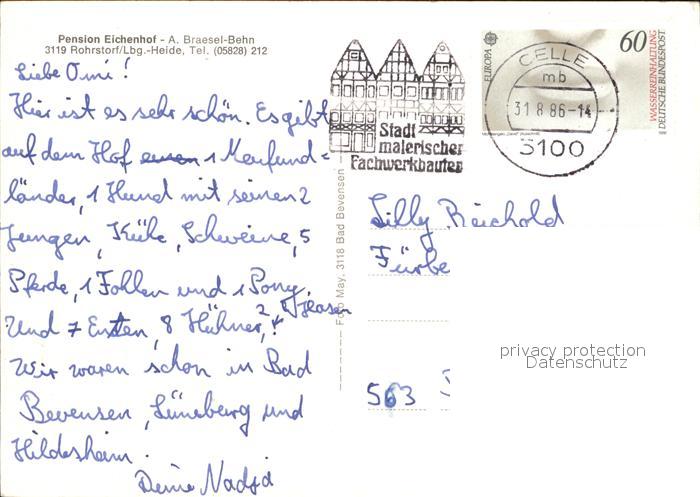 Pension Eichenhof - A. Braesel-Behn
3119 Rohrstorf/Lbg.-Heide, Tel. (05828) 212
Liebe Omi!
Hier ist es sehr schön. Es gibt
auf dem Hof einen 1 Neufund=
länder, 1 Hund mit seinen 2
Jungen, Kühe, Schweine, 5
Pferde, 1 Fohlen und 1 Pony.
Und 7 Enten, 8 Hühner, 2 Hasen
Wir waren schon in Bad
Bevensen, Lüneburg und
Hildesheim.
Deine Nadja
Foto May, 3118 Bad Bevensen
Stadt
malerischer
Fachwerkbauten
CELLE
mb
31.8.86-14
3100
EUROPA
60
WASSERREINHALTUNG
DEUTSCHE BUNDESPOST
Lilly Reichold
Färbe
563
privacy protection
Datenschutz